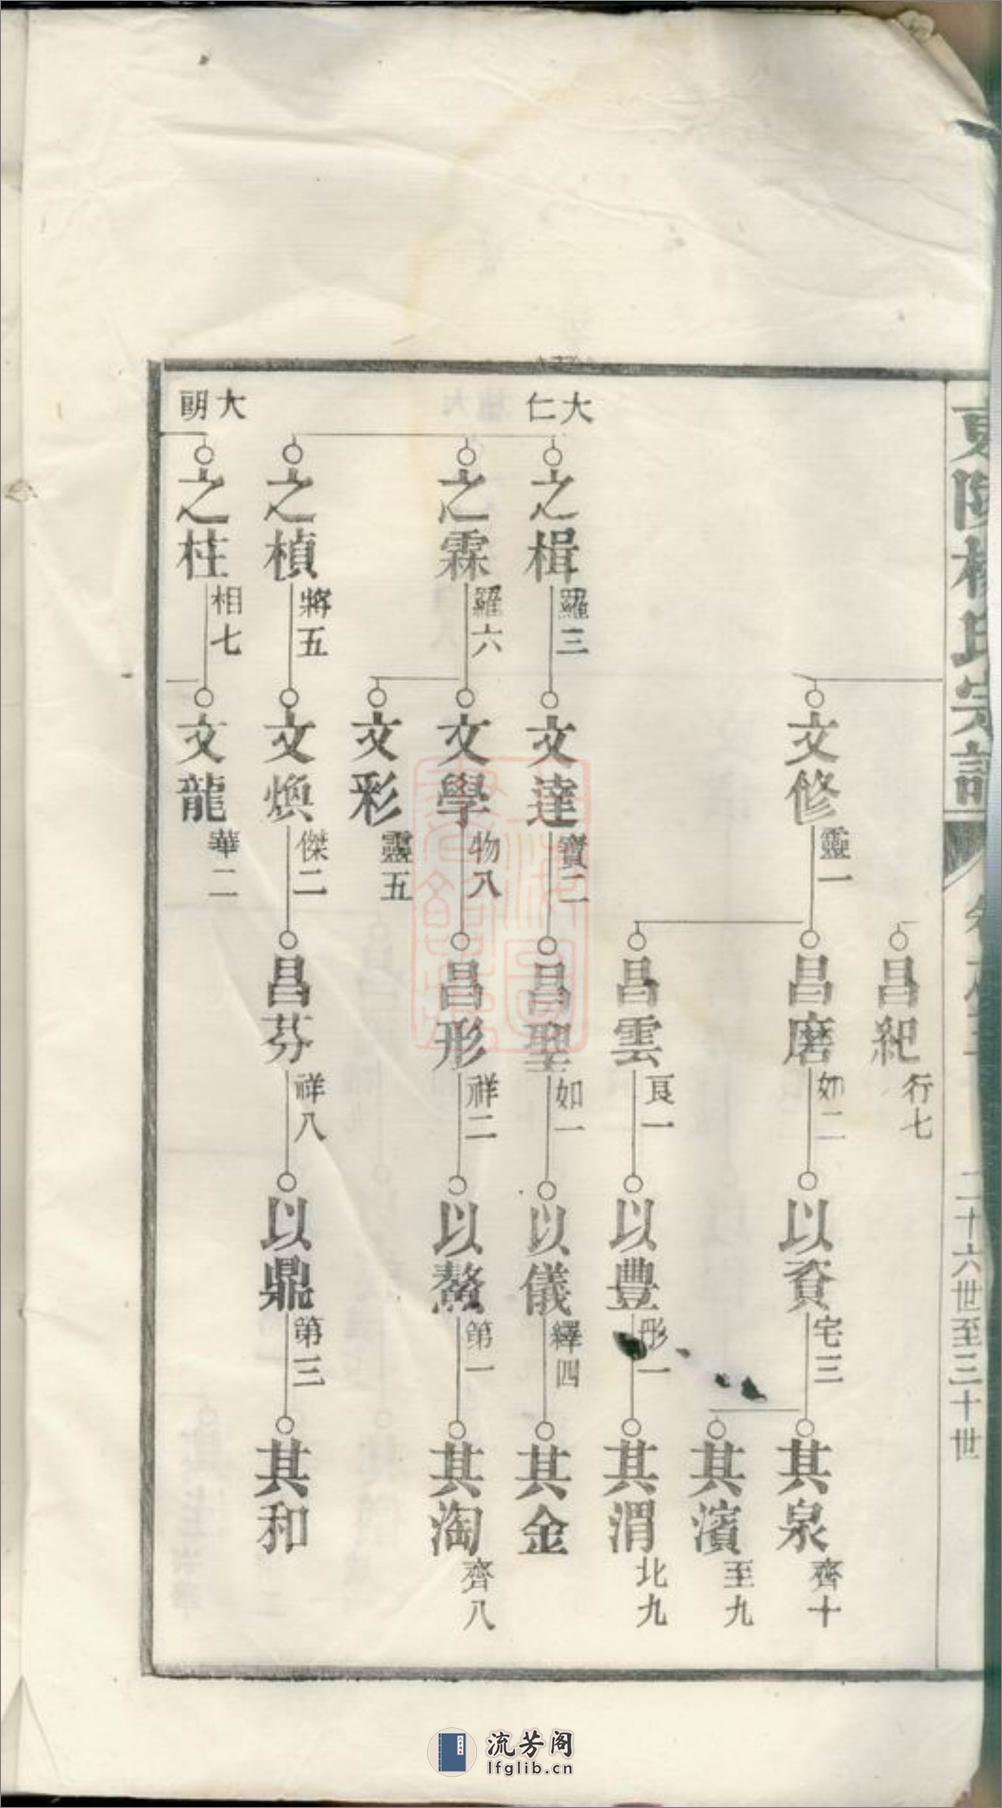 東陽楊氏宗譜
二十六世至三十世
昌紀 行七
文修 靈一
昌磨 如二
以資 宅三
其泉 齊十
其濱 至九
昌雲 良一
以豐 彤一
其渭 北九
大仁
之楫 羅三
文達 寶二
昌聖 如一
以儀 繹四
其金
之霖 羅六
文學 物八
昌形 祥二
以鰲 第一
其淘 齊八
文彩 靈五
之楨 將五
文煥 傑二
昌芬 祥八
以鼎 第三
其和
大明
之柱 相七
文龍 華二
流芳阁
lfglib.cn